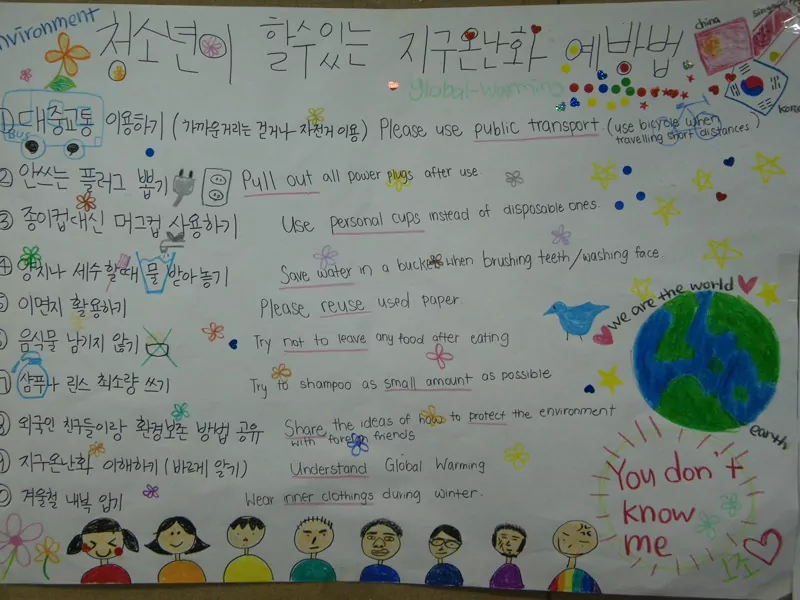 environment
청소년이 할수있는 지구온난화 예방법
Global-warming
china
singapore
korea
① 대중교통 이용하기 (가까운거리는 걷거나 자전거 이용) Please use public transport (use bicycle when travelling short distances)
BUS
② 안쓰는 플러그 뽑기 Pull out all power plugs after use.
③ 종이컵대신 머그컵 사용하기 Use personal cups instead of disposable ones.
④ 양치나 세수할때 물 받아놓기 Save water in a bucket when brushing teeth/washing face.
⑤ 이면지 활용하기 Please reuse used paper.
⑥ 음식물 남기지 않기 Try not to leave any food after eating
⑦ 샴푸나 린스 최소량 쓰기 Try to shampoo as small amount as possible
⑧ 외국인 친구들이랑 환경보존 방법 공유 Share the ideas of how to protect the environment with foreign friends
⑨ 지구온난화 이해하기 (바르게 알기) Understand Global Warming
⑩ 겨울철 내복 입기 Wear inner clothings during winter.
we are the world
earth
You don't
know
me
1조